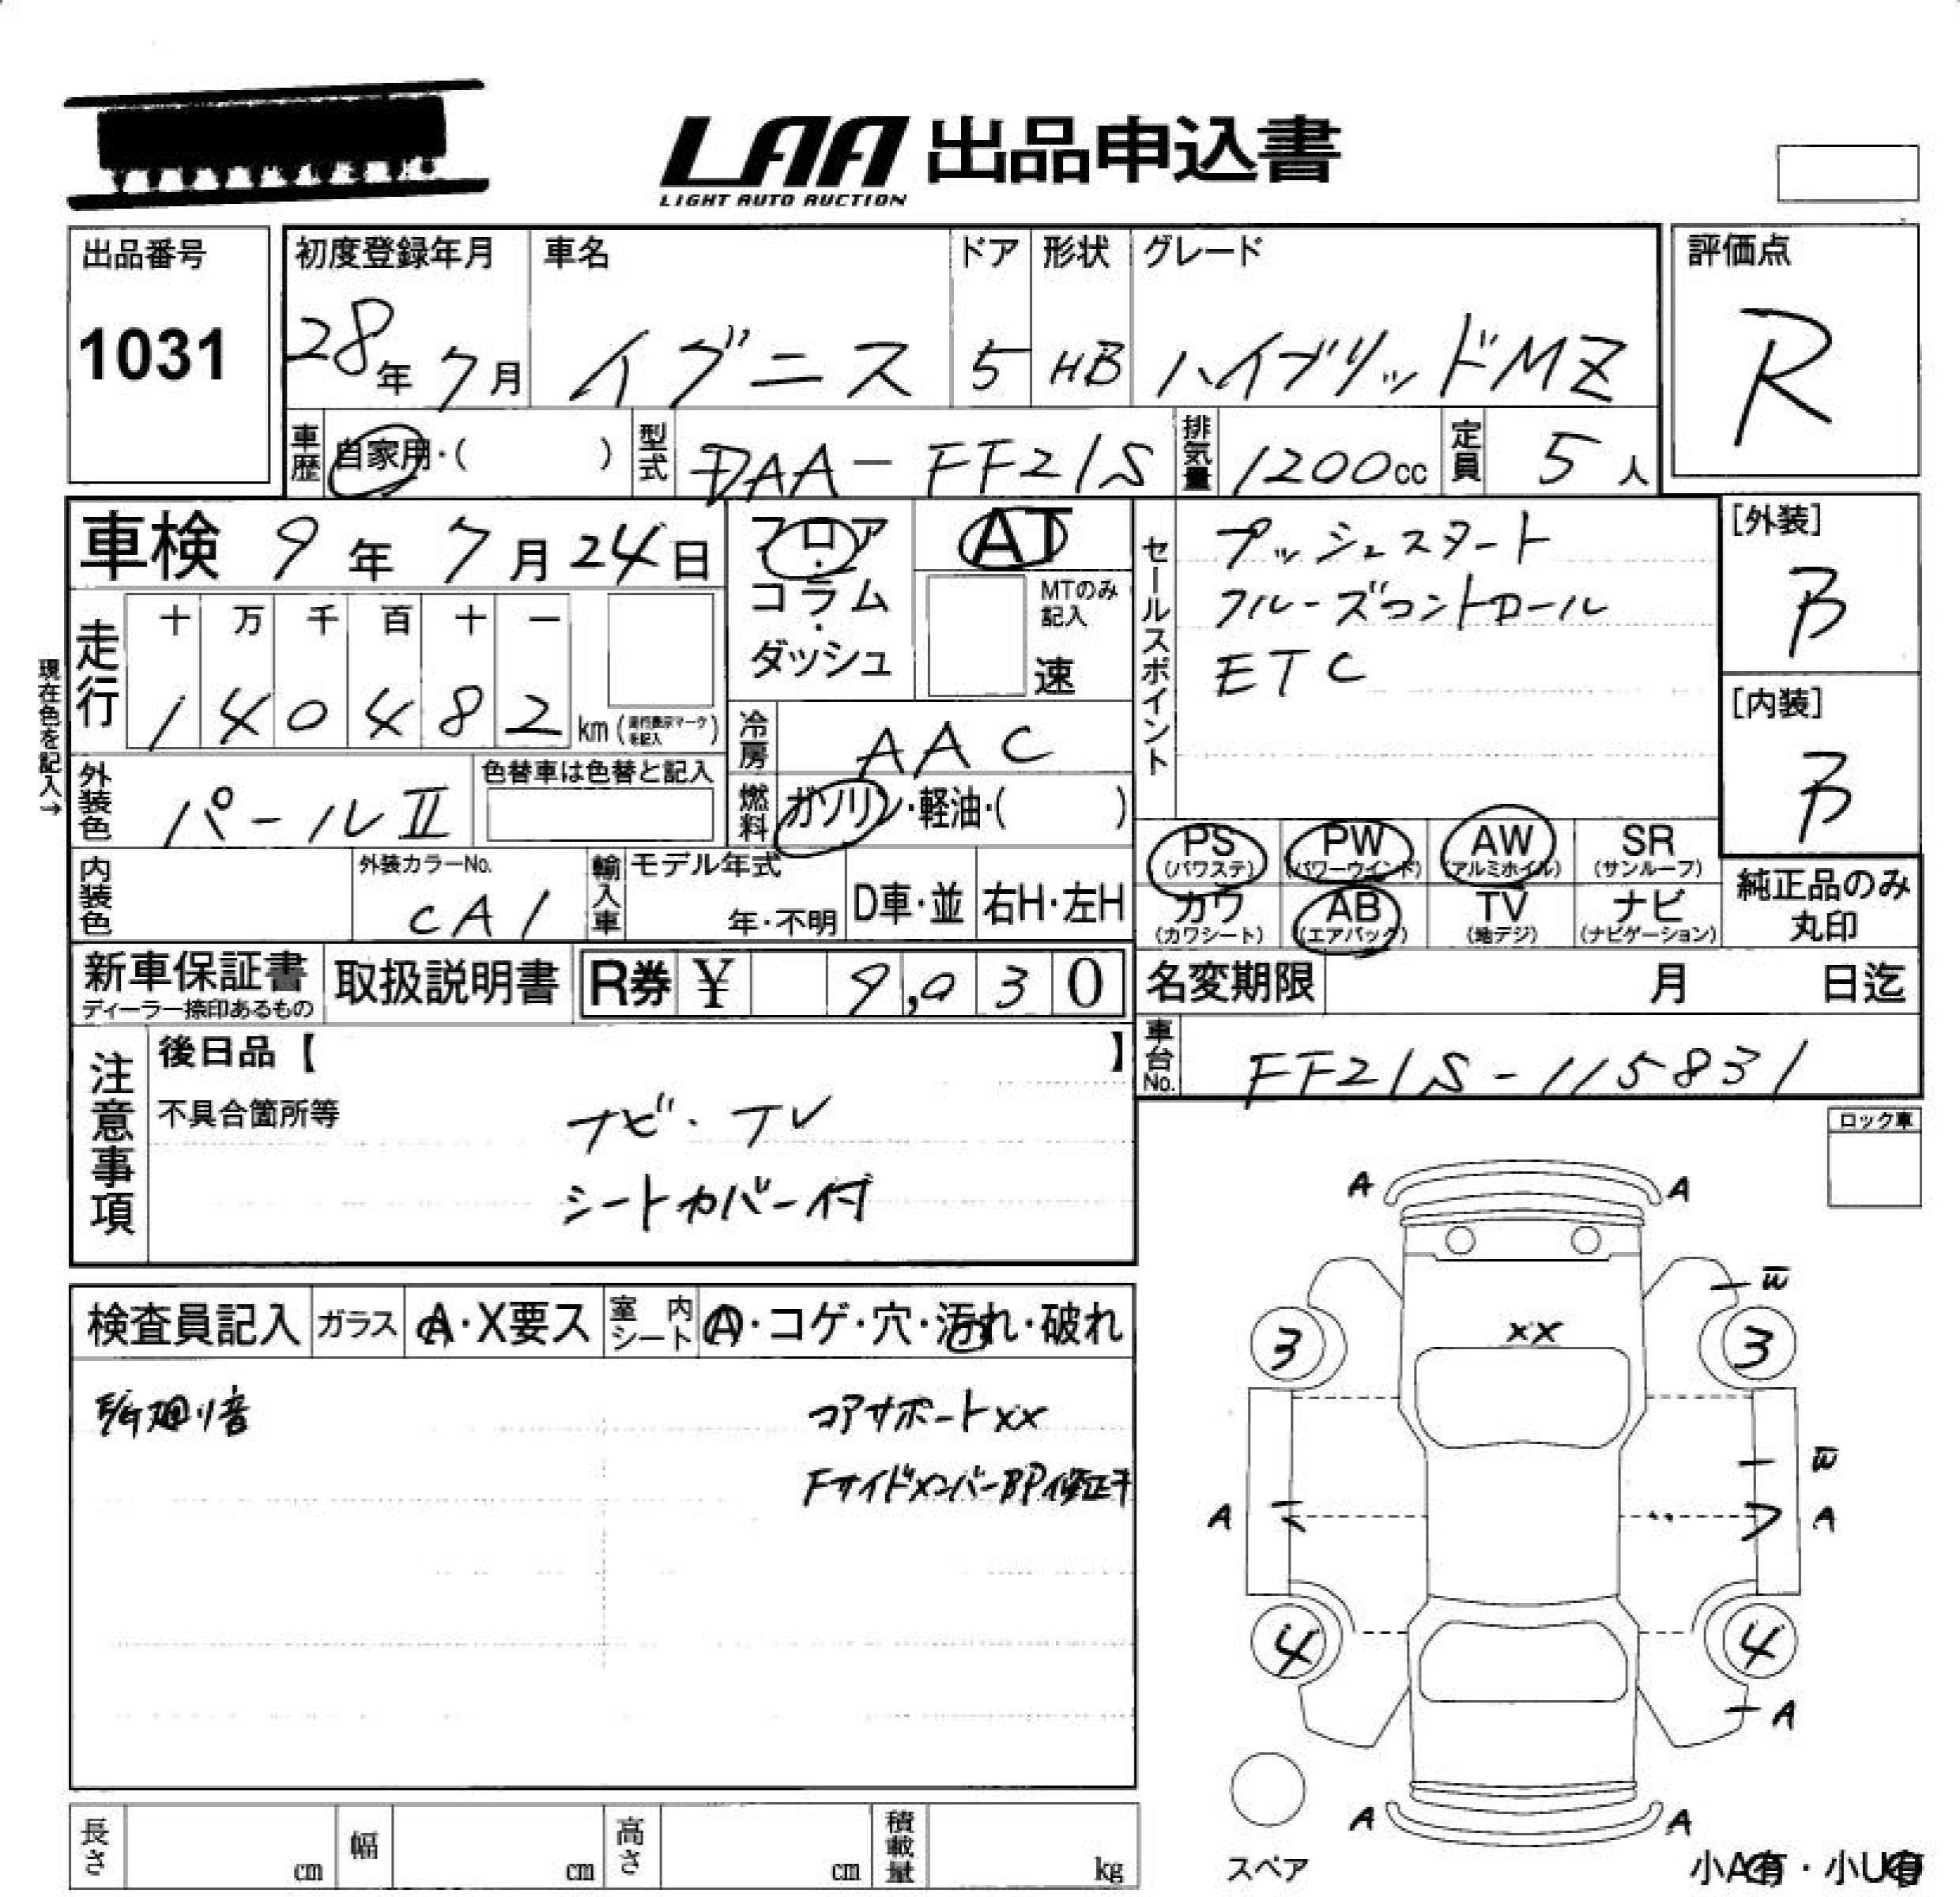 LAA 出品申込書
LIGHT AUTO AUCTION
出品番号
1031
初度登録年月
28年 7月
車名
イグニス
ドア
5
形状
HB
グレード
ハイブリッドMZ
評価点
R
車歴 自家用・( )
型式 DAA-FF21S
排気量 1200cc
定員 5人
車検 9年 7月 24日
フロア・コラム・ダッシュ
AT
MTのみ記入
速
セールスポイント
プッシュスタート
クルーズコントロール
ETC
[外装]
B
[内装]
B
現在色を記入→
走行
十 万 千 百 十 一
1 4 0 4 8 2 km (走行表示マークを記入)
冷房 AAC
外装色 パールⅡ
色替車は色替と記入
燃料 ガソリン・軽油・( )
内装色
外装カラーNo.
CA1
輸入車
モデル年式
年・不明
D車・並
右H・左H
PS (パワステ)
PW (パワーウインド)
AW (アルミホイル)
SR (サンルーフ)
カワ (カワシート)
AB (エアバック)
TV (地デジ)
ナビ (ナビゲーション)
純正品のみ丸印
新車保証書
ディーラー捺印あるもの
取扱説明書
R券 ¥ 9,030
名変期限 月 日迄
車台No. FF21S-115831
注意事項
後日品【 】
不具合箇所等
ナビ・TV
シートカバー付
ロック車
検査員記入
ガラス A・X要ス
室内シート A・コゲ・穴・汚れ・破れ
廻り音
コアサポートXX
FサイドメンバーBP修正キ
A A
W
3 XX 3
W
A A
4 4
A
A A
スペア
小A有・小U有
長さ cm
幅 cm
高さ cm
積載量 kg